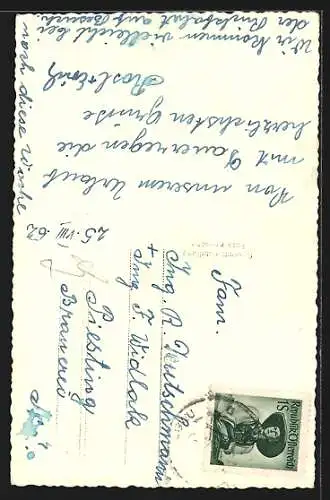 25. VIII 62
Von unserem Urlaub
mit Dauerregen die
herzlichsten Grüsse
Wir kommen vielleicht bei
der Rückfahrt auf Besuch.
noch diese Woche
Fam.
Ing. R. Kutschmann
+ Ing. F. Widlak
Piesting
Brauerei
N.Ö.
REPUBLIK ÖSTERREICH
1 S